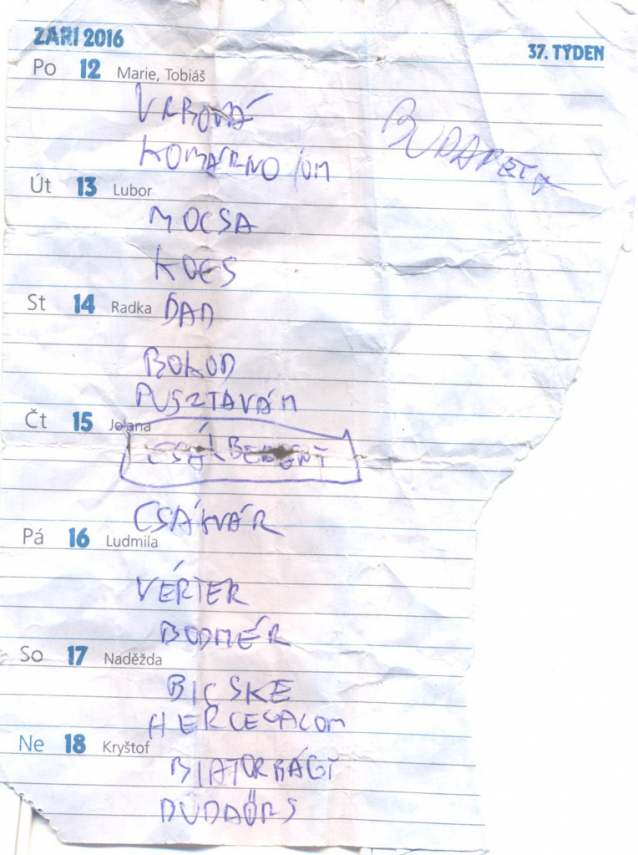 ZÁŘÍ 2016
37. TÝDEN
Po 12 Marie, Tobiáš
VRBOVÁ
BUDAPEŠŤ
KOMÁRNO
Út 13 Lubor
MOCSA
KOCS
St 14 Radka DAD
BOKOD
PUSZTAVÁM
Čt 15 Jolana
CSÁKBERÉNY
CSÁKVÁR
Pá 16 Ludmila
VÉRTER
BODMÉR
So 17 Naděžda
BICSKE
HERCEGALOM
Ne 18 Kryštof
BIATORBÁGY
BUDAÖRS